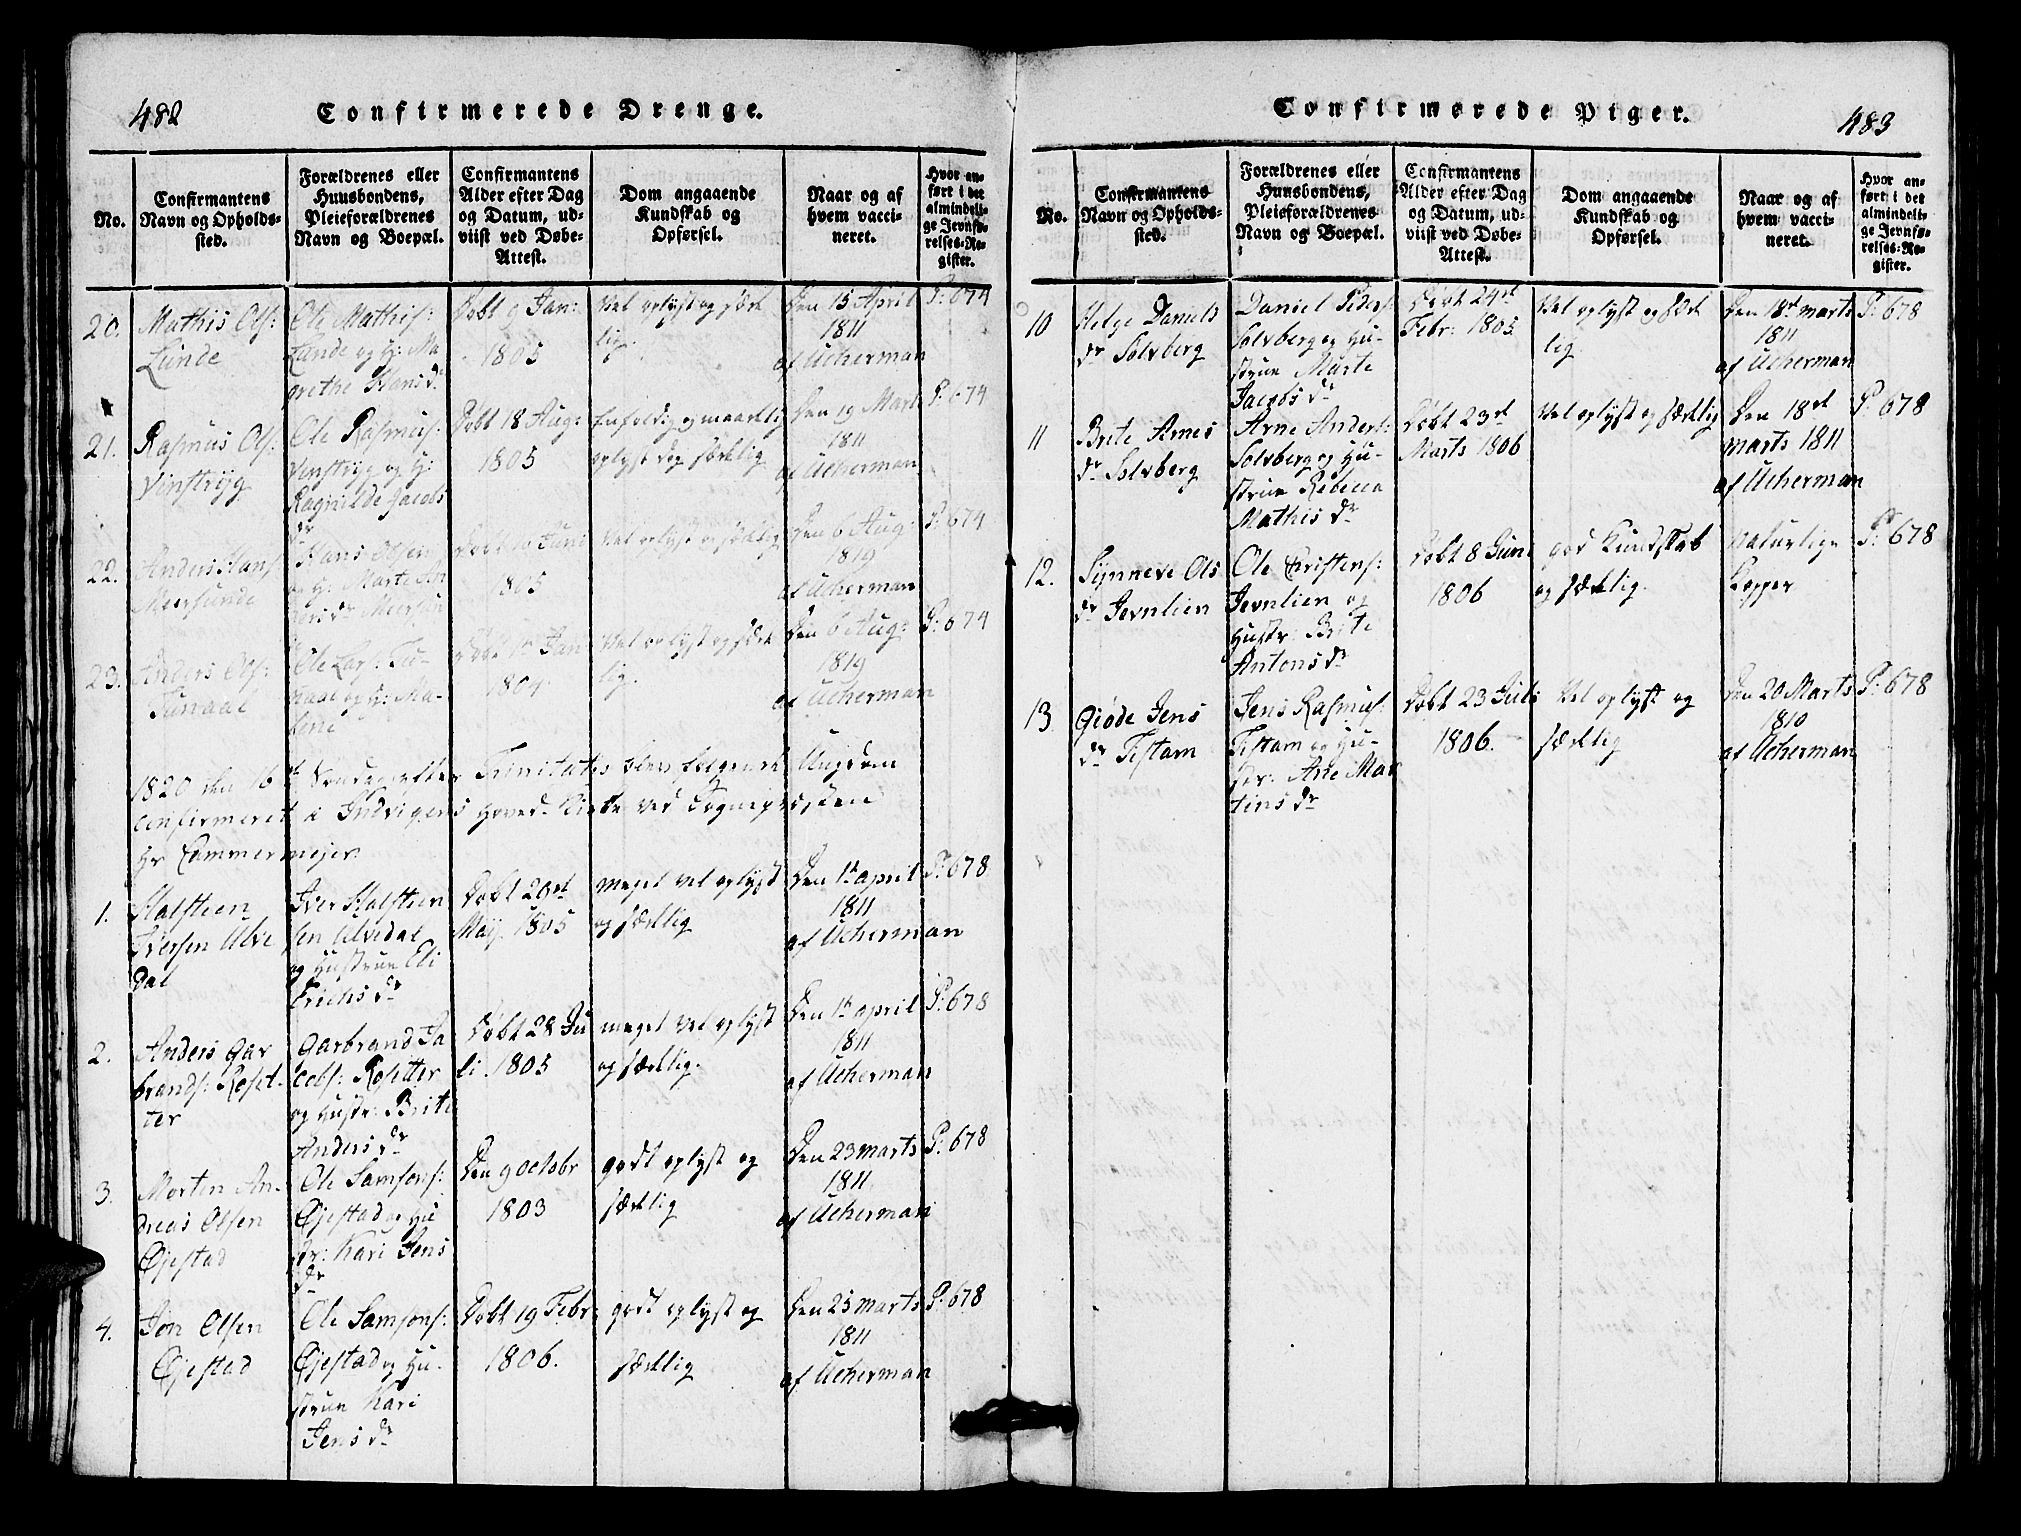 482
Confirmerede Drenge.
No.
Confirmantens
Navn og Opholds-
sted.
Forældrenes eller
Huusbondens,
Pleieforældrenes
Navn og Boepæl.
Confirmantens
Alder efter Dag
og Datum, ud-
viist ved Døbe-
Attest.
Dom angaaende
Kundskab og
Opførsel.
Naar og af
hvem vacci-
neret.
Hvor an-
ført i det
almindeli-
ge Jevnfø-
relses-Re-
gister.
20.
Mathis Ols:
Lunde
Ole Mathis:
Lunde og H: Ma
grethe Hans dr
Døbt 9 Jan:
1805
Vel oplyst og sæde
lig.
Den 15 April
1811
af Ucherman
P: 674
21.
Rasmus Ols:
Vinstryg
Ole Rasmus:
Vinstryg og H:
Ragnilde Jacobs
dr
Døbt 18 Aug:
1805
Enfoldig og maadelig
oplyst dog sædelig
Den 19 Mart
1811
af Ucherman
P: 674
22.
Anders Hans
Meersunde
Hans Olsen
og H: Marte An
ders dr Meersun
Døbt 10 Juni
1805
Vel oplyst og sædelig
Den 6 Aug:
1819
af Ucherman
P: 674
23.
Anders Ols:
Tunaal
Ole Lars: Tu-
naal og H: Ma-
lene
Jan
1804
Vel oplyst og sæde
lig.
Den 6 Aug:
1819
af Ucherman
P: 674
1820 den 16de Søndag efter Trinitatis blev følgende Ungdom
confirmeret i Indvigens Hoved-Kirke ved Sognepræsten
Hr Cammermejer.
1.
Halsteen
Iversen Ulve
dal
Iver Halsteen
sen Ulvedal
og Hustrue Eli
Erichs dr
Døbt 20de
Maij 1805
meget vel oplyst
og sædelig
Den 1te april
1811
af Ucherman
P: 678
2.
Anders Gar
brands: Roset-
ter
Garbrand Ja
cobs: Rosetter
og Hustr: Brite
Anders dr
Døbt 28 Ju
li 1805
meget vel oplyst
og sædelig.
Den 1te april
1811
af Ucherman
P: 678
3.
Morten An-
dreas Olsen
Øjestad
Ole Samsons:
Øjestad og Hu
str: Kari Jens
dr
Den 9 octobr
1803
godt oplyst og
sædelig
Den 23 marts
1811
af Ucherman
P: 678
4.
Jon Olsen
Øjestad
Ole Samsons:
Øjestad og Hu-
strue Kari
Jens dr
Døbt 19 Febr:
1806.
godt oplyst og
sædelig
Den 25 marts
1811
af Ucherman
P: 678
Confirmerede Piger.
483
No.
Confirmantens
Navn og Opholds-
sted.
Forældrenes eller
Huusbondens,
Pleieforældrenes
Navn og Boepæl.
Confirmantens
Alder efter Dag
og Datum, ud-
viist ved Døbe-
Attest.
Dom angaaende
Kundskab og
Opførsel.
Naar og af
hvem vacci-
neret.
Hvor an-
ført i det
almindeli-
ge Jevnfø-
relses-Re-
gister.
10
Helge Daniels
dr Solvberg
Daniel Peders:
Solvberg og Hu-
strue Marte
Jacobs dr
Døbt 24de
Febr: 1805
Vel oplyst og sæde
lig
Den 18de marts
1811
af Ucherman
P: 678
11
Brite Arnes
dr Solvberg
Arne Anders:
Solvberg og Hu-
strue Rebecca
Mathis dr
Døbt 23de
Marts 1806
Vel oplyst og sædelig
Den 18de
marts 1811
af Ucherman
P: 678
12.
Synneve Ols
dr Jevnlien
Ole Cristens:
Jevnlien og
Hustr: Brite
Antons dr
Døbt 8 Juni
1806
god Kundskab
og sædelig.
Naturlige
Kopper
P: 678
13
Giøde Jens
dr Tistam
Jens Rasmus:
Tistam og Hu-
str: Ane Mar
tins dr
Døbt 23 Juli
1806.
Vel oplyst og
sædelig
Den 20 Marts
1810
af Ucherman
P: 678